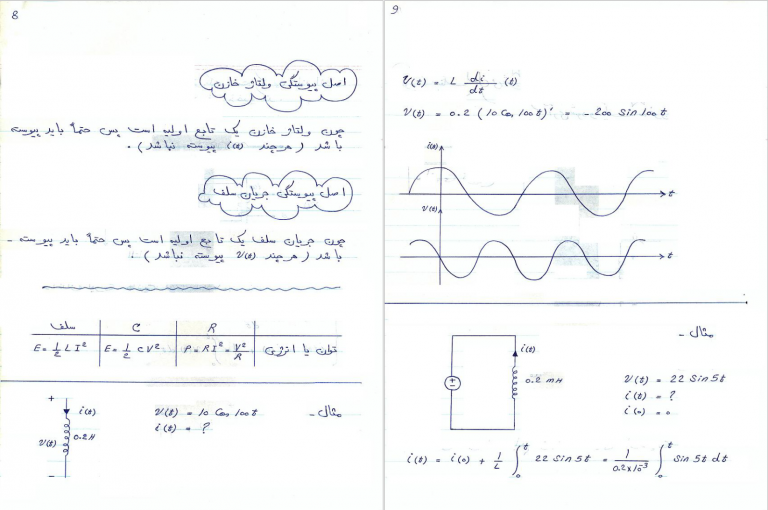 8
اصل پیوستگی ولتاژ خازن
چون ولتاژ خازن یک تابع اولیه است پس حتماً باید پیوسته
باشد (هرچند i(t) پیوسته نباشد).
اصل پیوستگی جریان سلف
چون جریان سلف یک تابع اولیه است پس حتماً باید پیوسته -
باشد (هرچند V(t) پیوسته نباشد).
سلف C R
E = 1/2 L I² E = 1/2 C V² P = RI² = V²/R توان یا انرژی
مثال -
V(t) = 10 Cos 100t
i(t) = ?
+ i(t)
V(t) 0.2H
-
9
V(t) = L di/dt (t)
V(t) = 0.2 (10 Cos 100t)' = - 200 Sin 100t
i(t)
t
V(t)
t
مثال -
i(t)
0.2 mH
V(t) = 22 Sin 5t
i(t) = ?
i(0) = 0
i(t) = i(0) + 1/L ∫₀ᵗ 22 Sin 5t = 1/0.2×10⁻³ ∫₀ᵗ Sin 5t dt